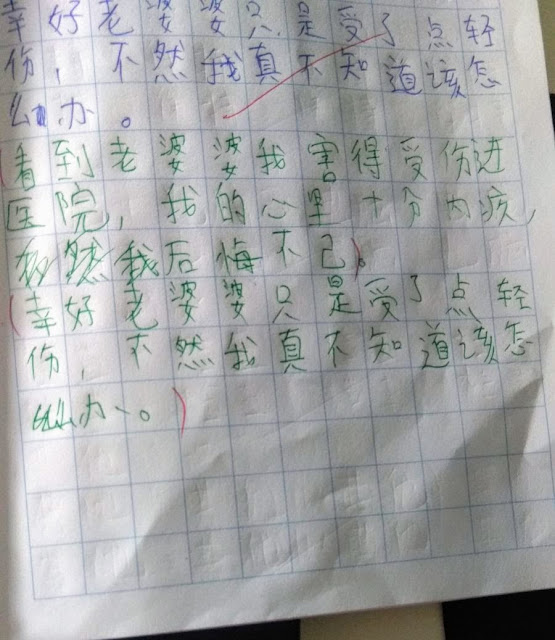 幸好老婆婆只是受了点轻
伤，不然我真不知道该怎
么办。
看到老婆婆我害得受伤进
医院，我的心里十分内疚，
然我后悔不已。
幸好老婆婆只是受了点轻
伤，不然我真不知道该怎
么办。